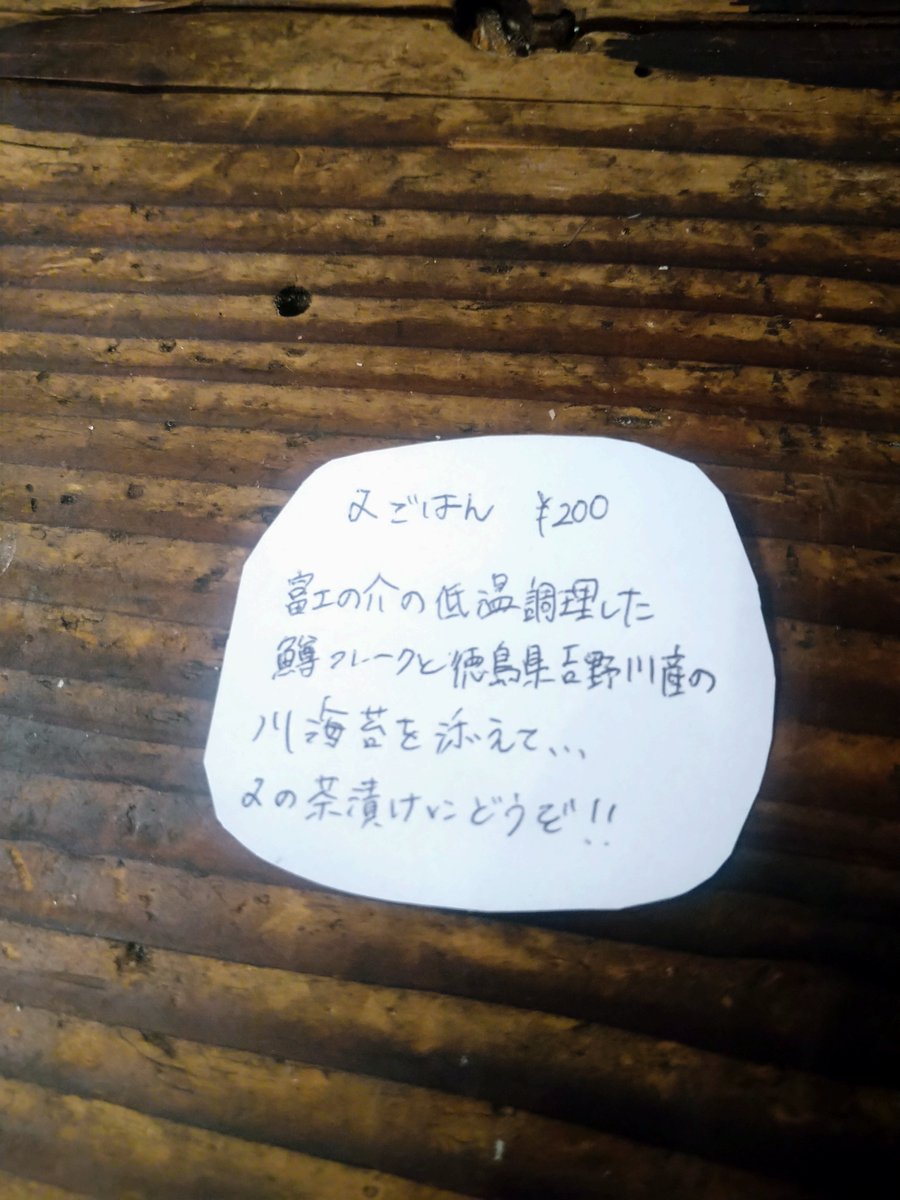 〆ごはん ¥200
富士の介の低温調理した
鱒フレークと徳島県吉野川産の
川海苔を添えて、、、
〆の茶漬けにどうぞ!!